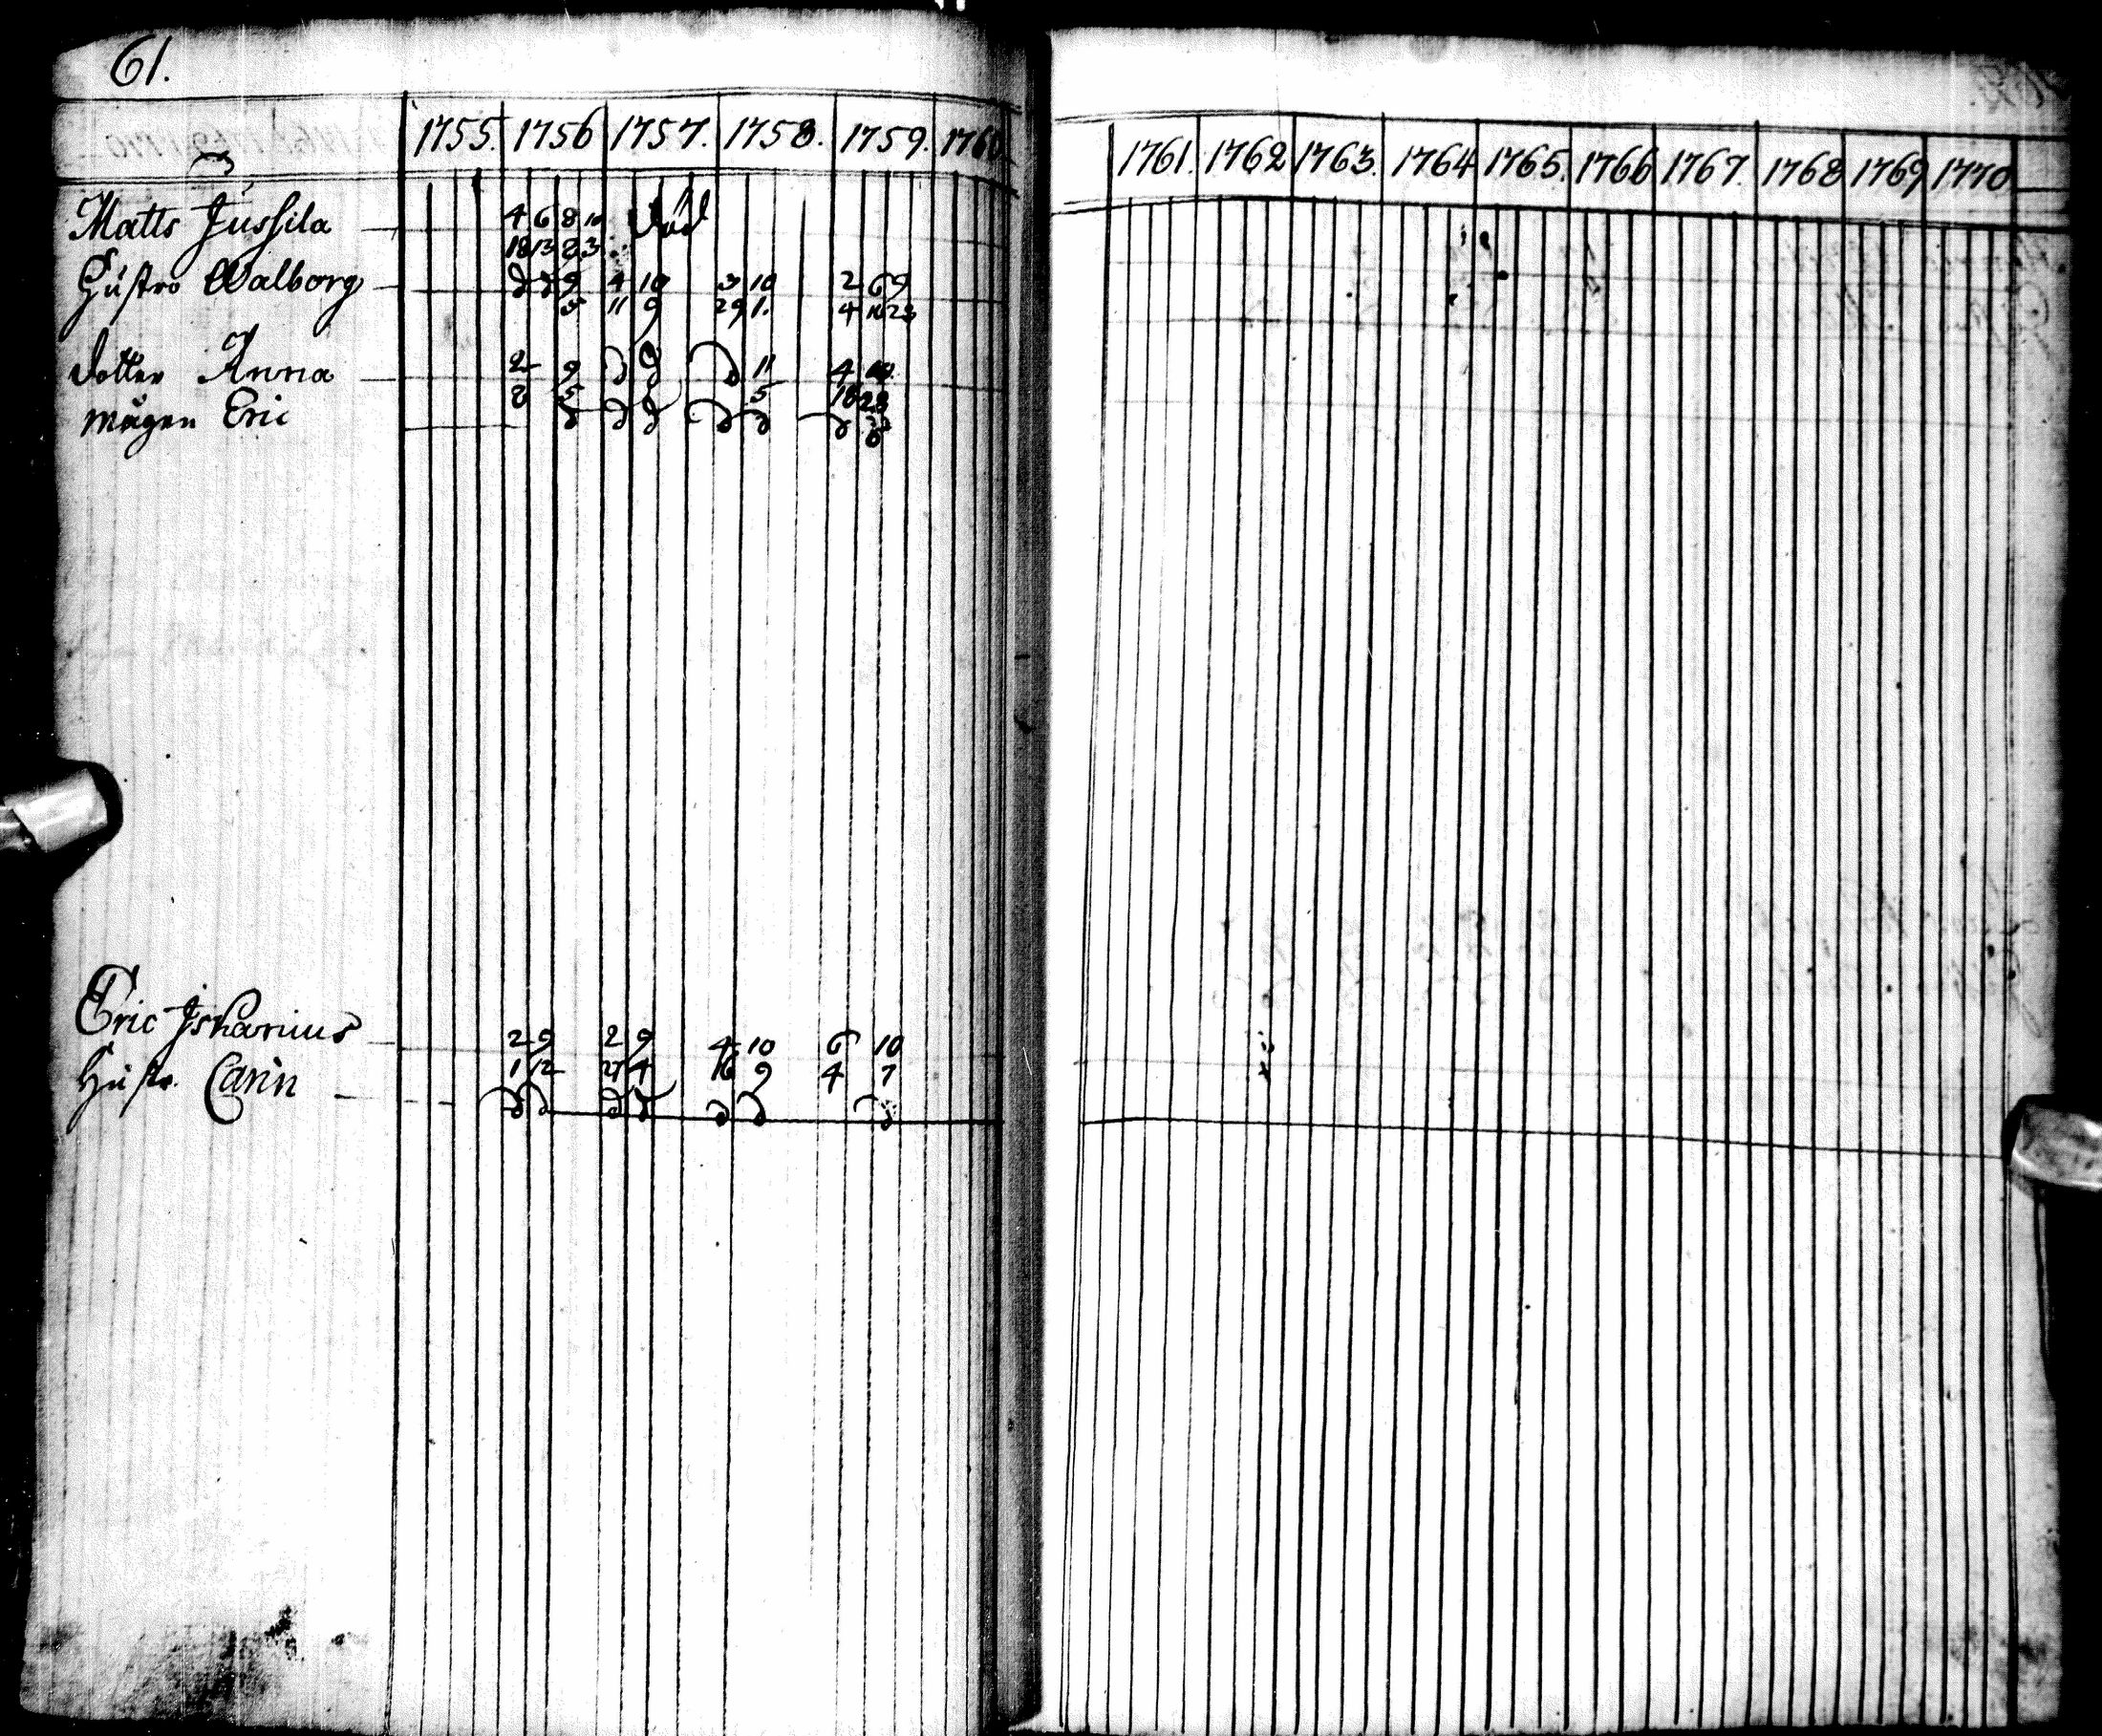 61.
1755. 1756 1757. 1758. 1759. 1760 1761. 1762 1763. 1764 1765. 1766 1767. 1768 1769 1770
Matts Jussila 4 6 8 10 död
18 13 8 3
Hustro Walborg d d 9 4 10 3 10 2 6 9
5 11 9 29 1. 4 16 23
dotter Anna 2 9 d d d 11 4
8 5 5 18 28
mågen Eric d d d d d d d
Eric Ishanius 2 9 2 9 4 10 6 10
1 12 27 4 16 9 4 7
Hustr. Carin d d d d d d d